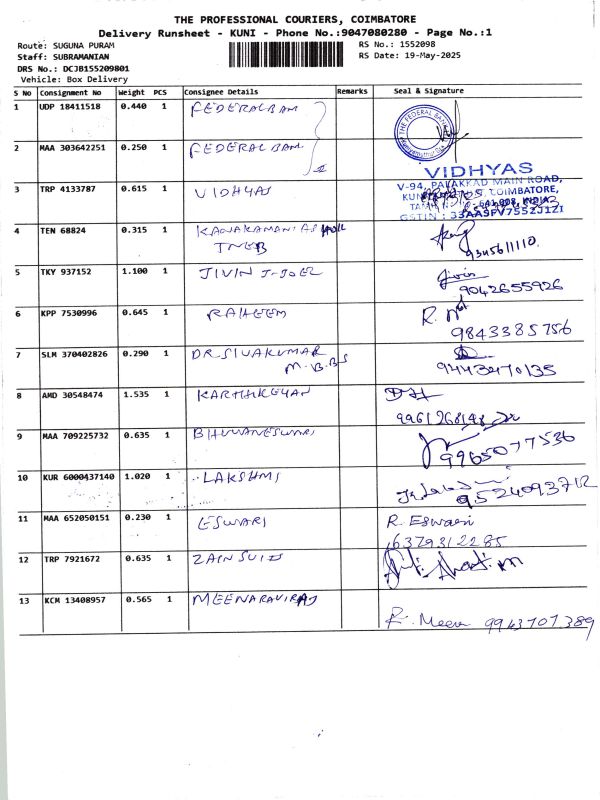 THE PROFESSIONAL COURIERS, COIMBATORE
Delivery Runsheet - KUNI - Phone No.:9047080280 - Page No.:1
Route: SUGUNA PURAM
Staff: SUBRAMANIAN
DRS No.: DCJB155209801
Vehicle: Box Delivery
RS No.: 1552098
RS Date: 19-May-2025
S No Consignment No Weight PCS Consignee Details Remarks Seal & Signature
1 UDP 18411518 0.440 1 FEDERAL BAM
THE FEDERAL BANK
2 MAA 303642251 0.250 1 FEDERAL BAM
3 TRP 4133787 0.615 1 VIDHYAS
VIDHYAS
V-94, PALAKKAD MAIN ROAD,
COIMBATORE,
GSTIN : 33AASFV7552J1ZI
4 TEN 68824 0.315 1 KANAKAMANI
TNEB
9345611110.
5 TKY 937152 1.100 1 JIVIN J-JOEL
Jivin
9042655926
6 KPP 7530996 0.645 1 RAHEEM
R.
9843385756
7 SLM 370402826 0.290 1 DR.SIVAKUMAR
M.B.BS
9443470135
8 AMD 30548474 1.535 1 KARTHIKEYAN
9961268148
9 MAA 709225732 0.635 1 BHUVANESWARI
9965077536
10 KUR 6000437140 1.020 1 LAKSHMI
9524093712
11 MAA 652050151 0.230 1 ESWARI
R. Eswari
6379312285
12 TRP 7921672 0.635 1 ZAIN SUIJ
13 KCM 13408957 0.565 1 MEENARAVIRAJ
R. Meena 9943707389